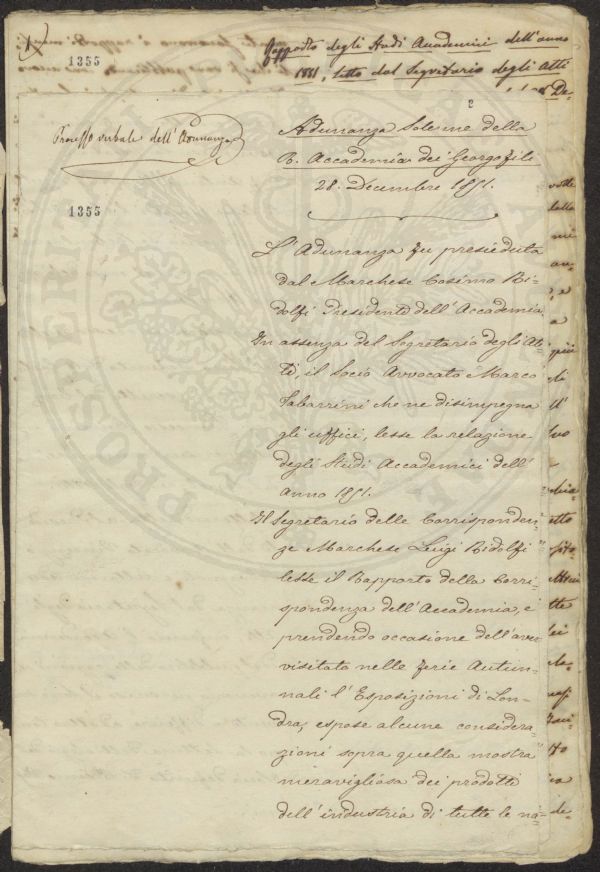 1355
Rapporto degli Studi Accademici dell'anno
1851, letto dal Segretario degli Atti
Processo verbale dell'Adunanza
1355
Adunanza Solenne della
R. Accademia dei Georgofili
28. Decembre 1851.
L'Adunanza fu presieduta
dal Marchese Cosimo Ri-
dolfi Presidente dell'Accademia
In assenza del Segretario degli At-
ti, il Socio Avvocato Marco
Tabarrini che ne disimpegna
gli uffici, lesse la relazione
degli Studi Accademici dell'
anno 1851.
Il Segretario delle Corrisponden-
ze Marchese Luigi Ridolfi
lesse il Rapporto della Corri-
spondenza dell'Accademia, e
prendendo occasione dell'aver
visitato nelle ferie Autun-
nali l'Esposizioni di Lon-
dra, espose alcune considera-
zioni sopra quella mostra
meravigliosa dei prodotti
dell'industria di tutte le na-
PROSPERITÀ